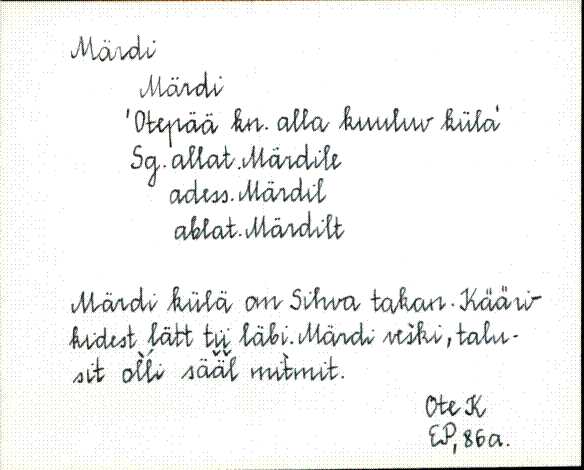 Märdi
Märdi
'Otepää kn. alla kuuluv küla'
Sg. allat. Märdile
adess. Märdil
ablat. Märdilt
Märdi külä on Sihva takan. Kääri-
kidest lätt tii läbi. Märdi veski, talu-
sit olli sääl mitmit.
Ote K
EP, 86a.